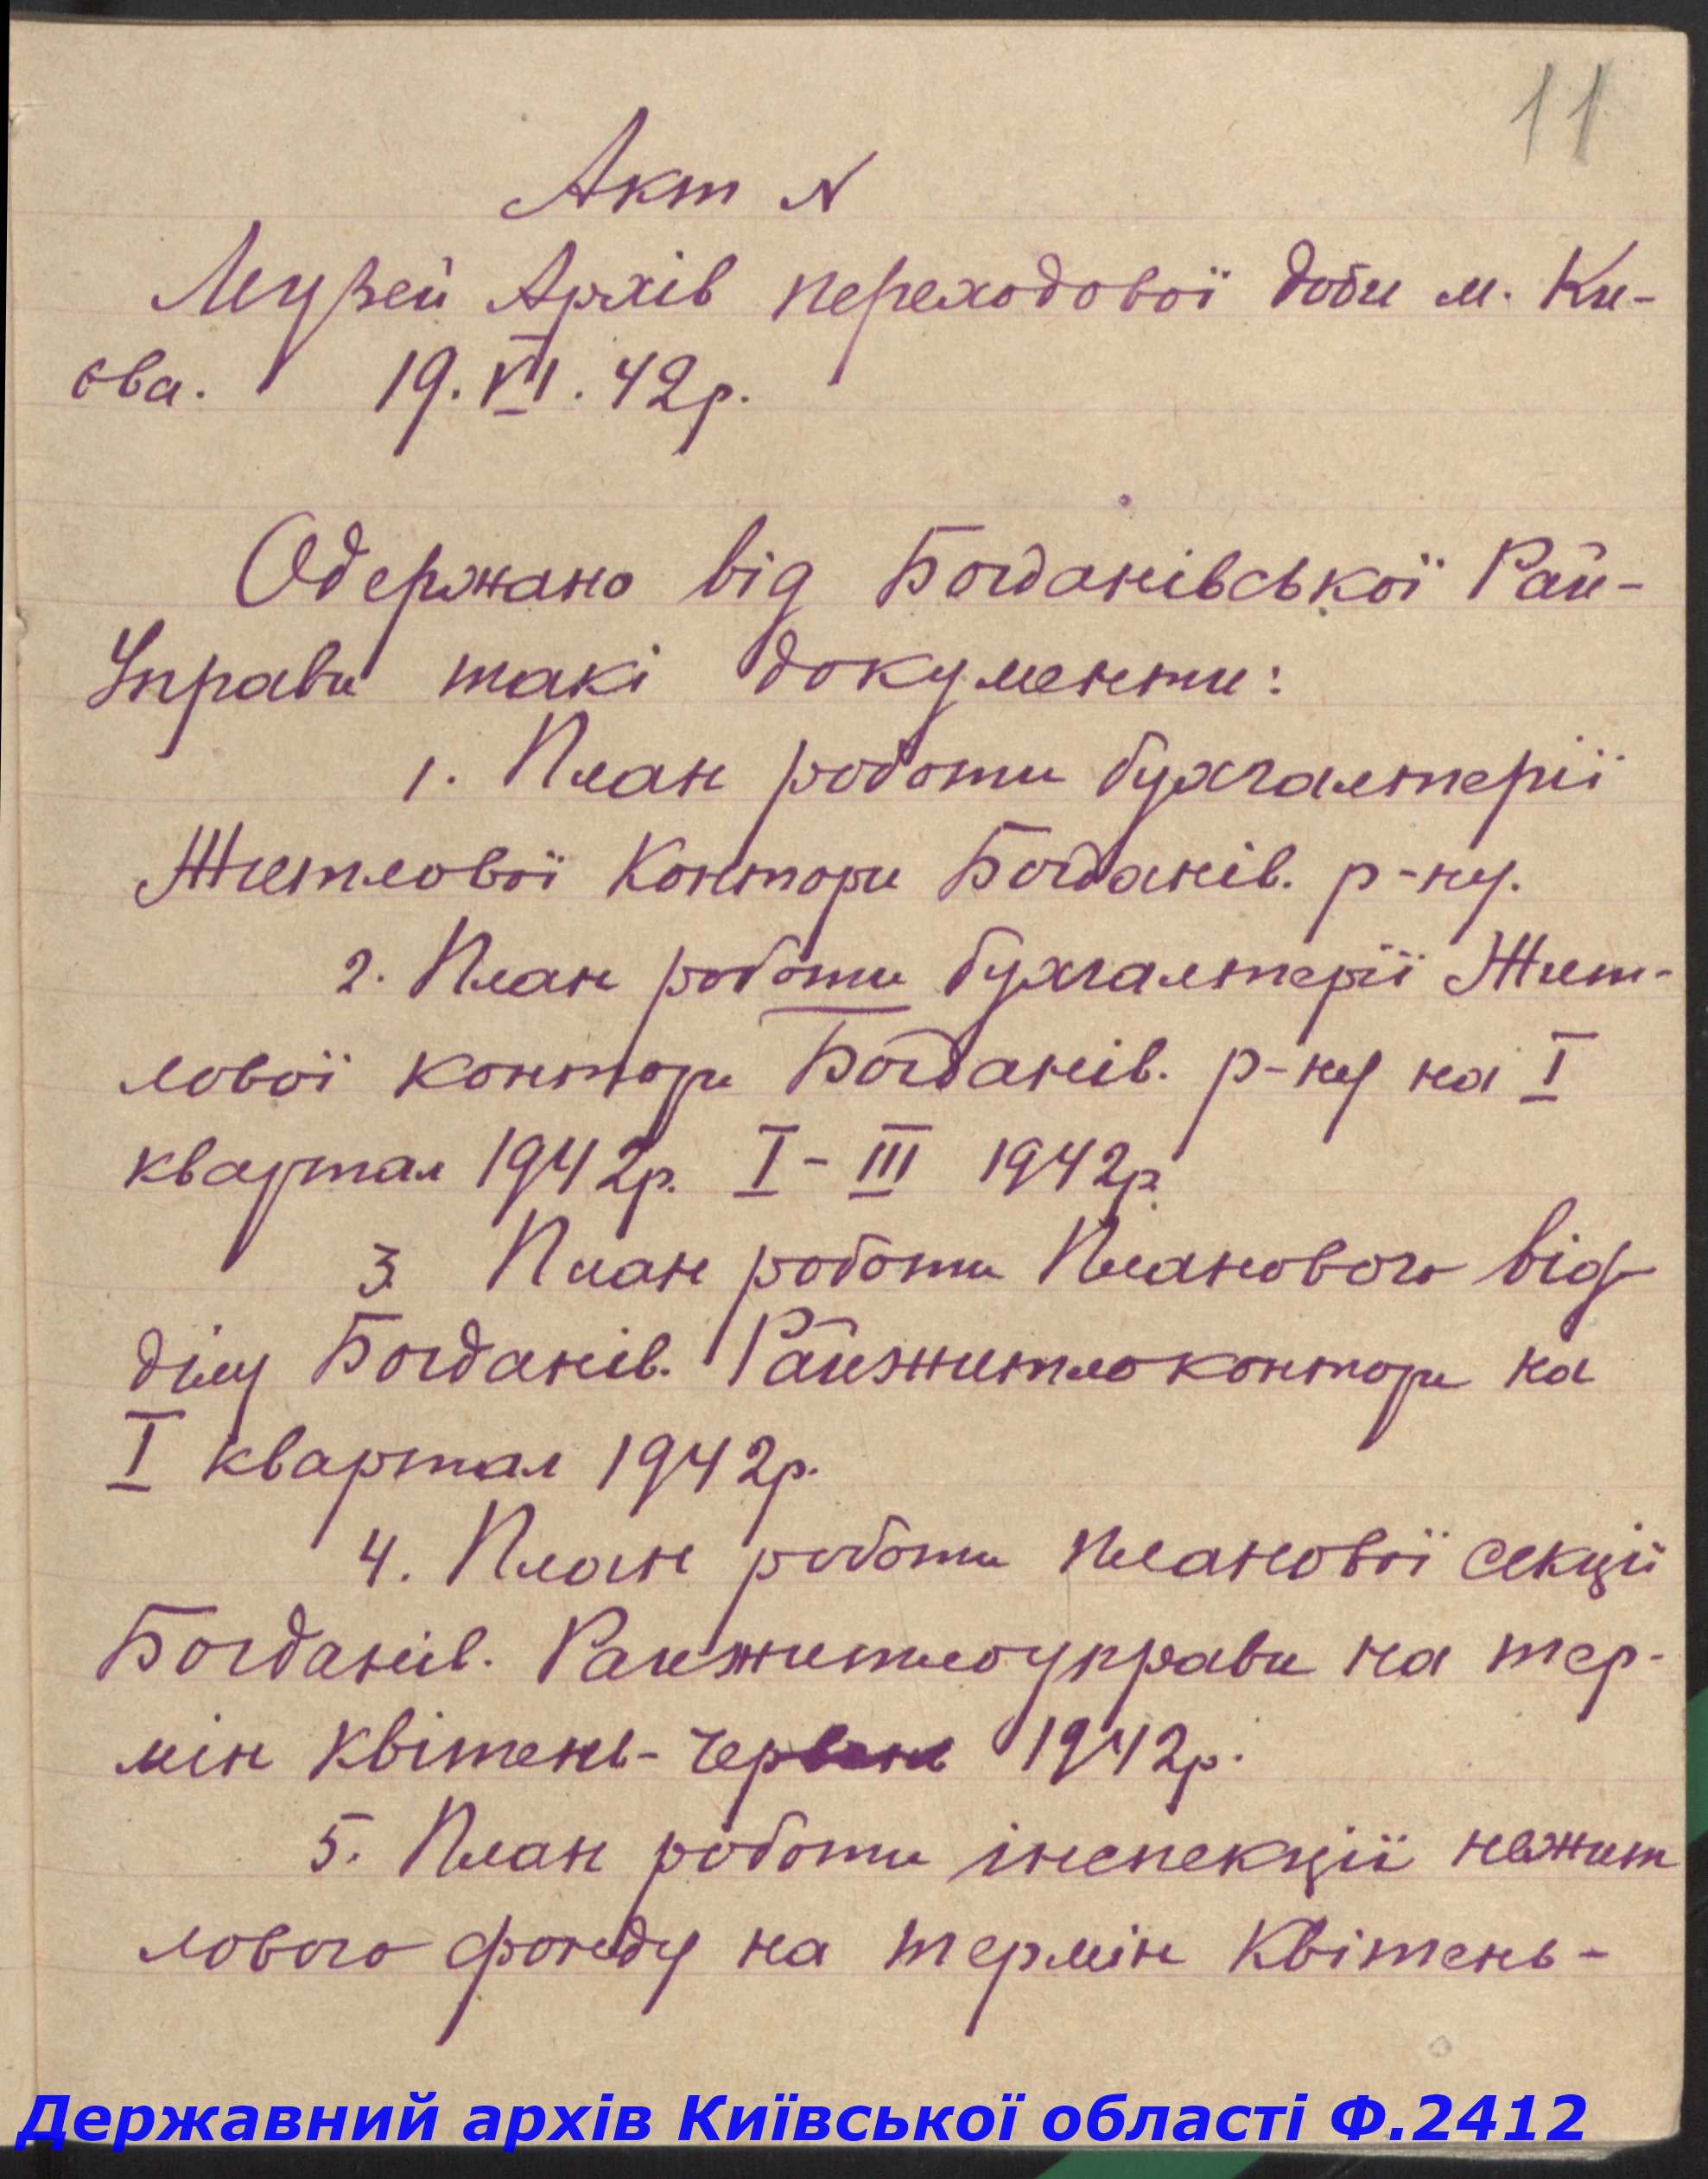 11
Акт N
Музей Архів переходової доби м. Ки-
єва. 19.VI.42р.
Одержано від Богданівської Рай-
Управи такі документи:
1. План роботи бухгалтерії
Житлової Контори Богданів. р-ну.
2. План роботи бухгалтерії Жит-
лової контори Богданів. р-ну на I
квартал 1942р. I-III 1942р.
3. План роботи Планового від-
ділу Богданів. Райжитлоконтори на
I квартал 1942р.
4. План роботи планової секції
Богданів. Райжитлоуправи на тер-
мін квітень-червень 1942р.
5. План роботи інспекції нежит
лового фонду на термін квітень-
Державний архів Київської області Ф.2412